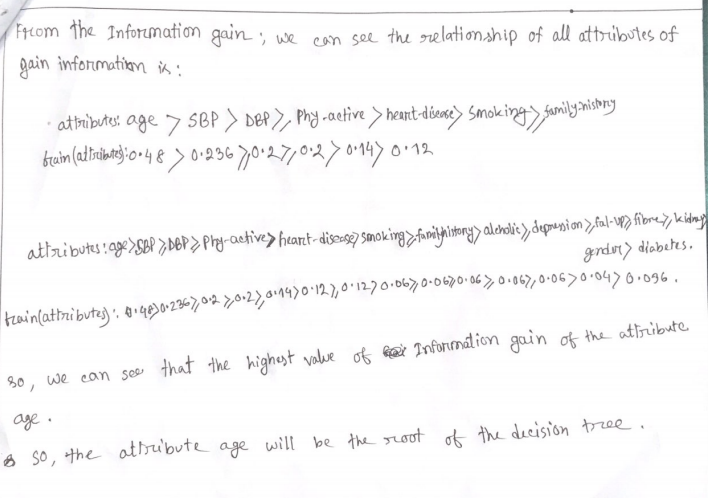 From the Information gain; we can see the relationship of all attributes of
gain information is:
attributes: age > SBP > DBP ≥ Phy-active > heart-disease > Smoking ≥ family-history
train(attributes): 0.48 > 0.236 ≥ 0.2 ≥ 0.2 > 0.14 > 0.12
attributes: age > SBP ≥ DBP ≥ Phy-active > heart-disease > smoking ≥ family history > alcholic ≥ depression ≥ fal-up ≥ fibre ≥ kidney
gender > diabetes.
train(attributes): 0.48 > 0.236 ≥ 0.2 ≥ 0.2 ≥ 0.14 > 0.12 ≥ 0.12 > 0.06 ≥ 0.06 ≥ 0.06 ≥ 0.06 ≥ 0.06 > 0.04 > 0.096.
so, we can see that the highest value of Information gain of the attribute
age.
so, the attribute age will be the root of the decision tree.